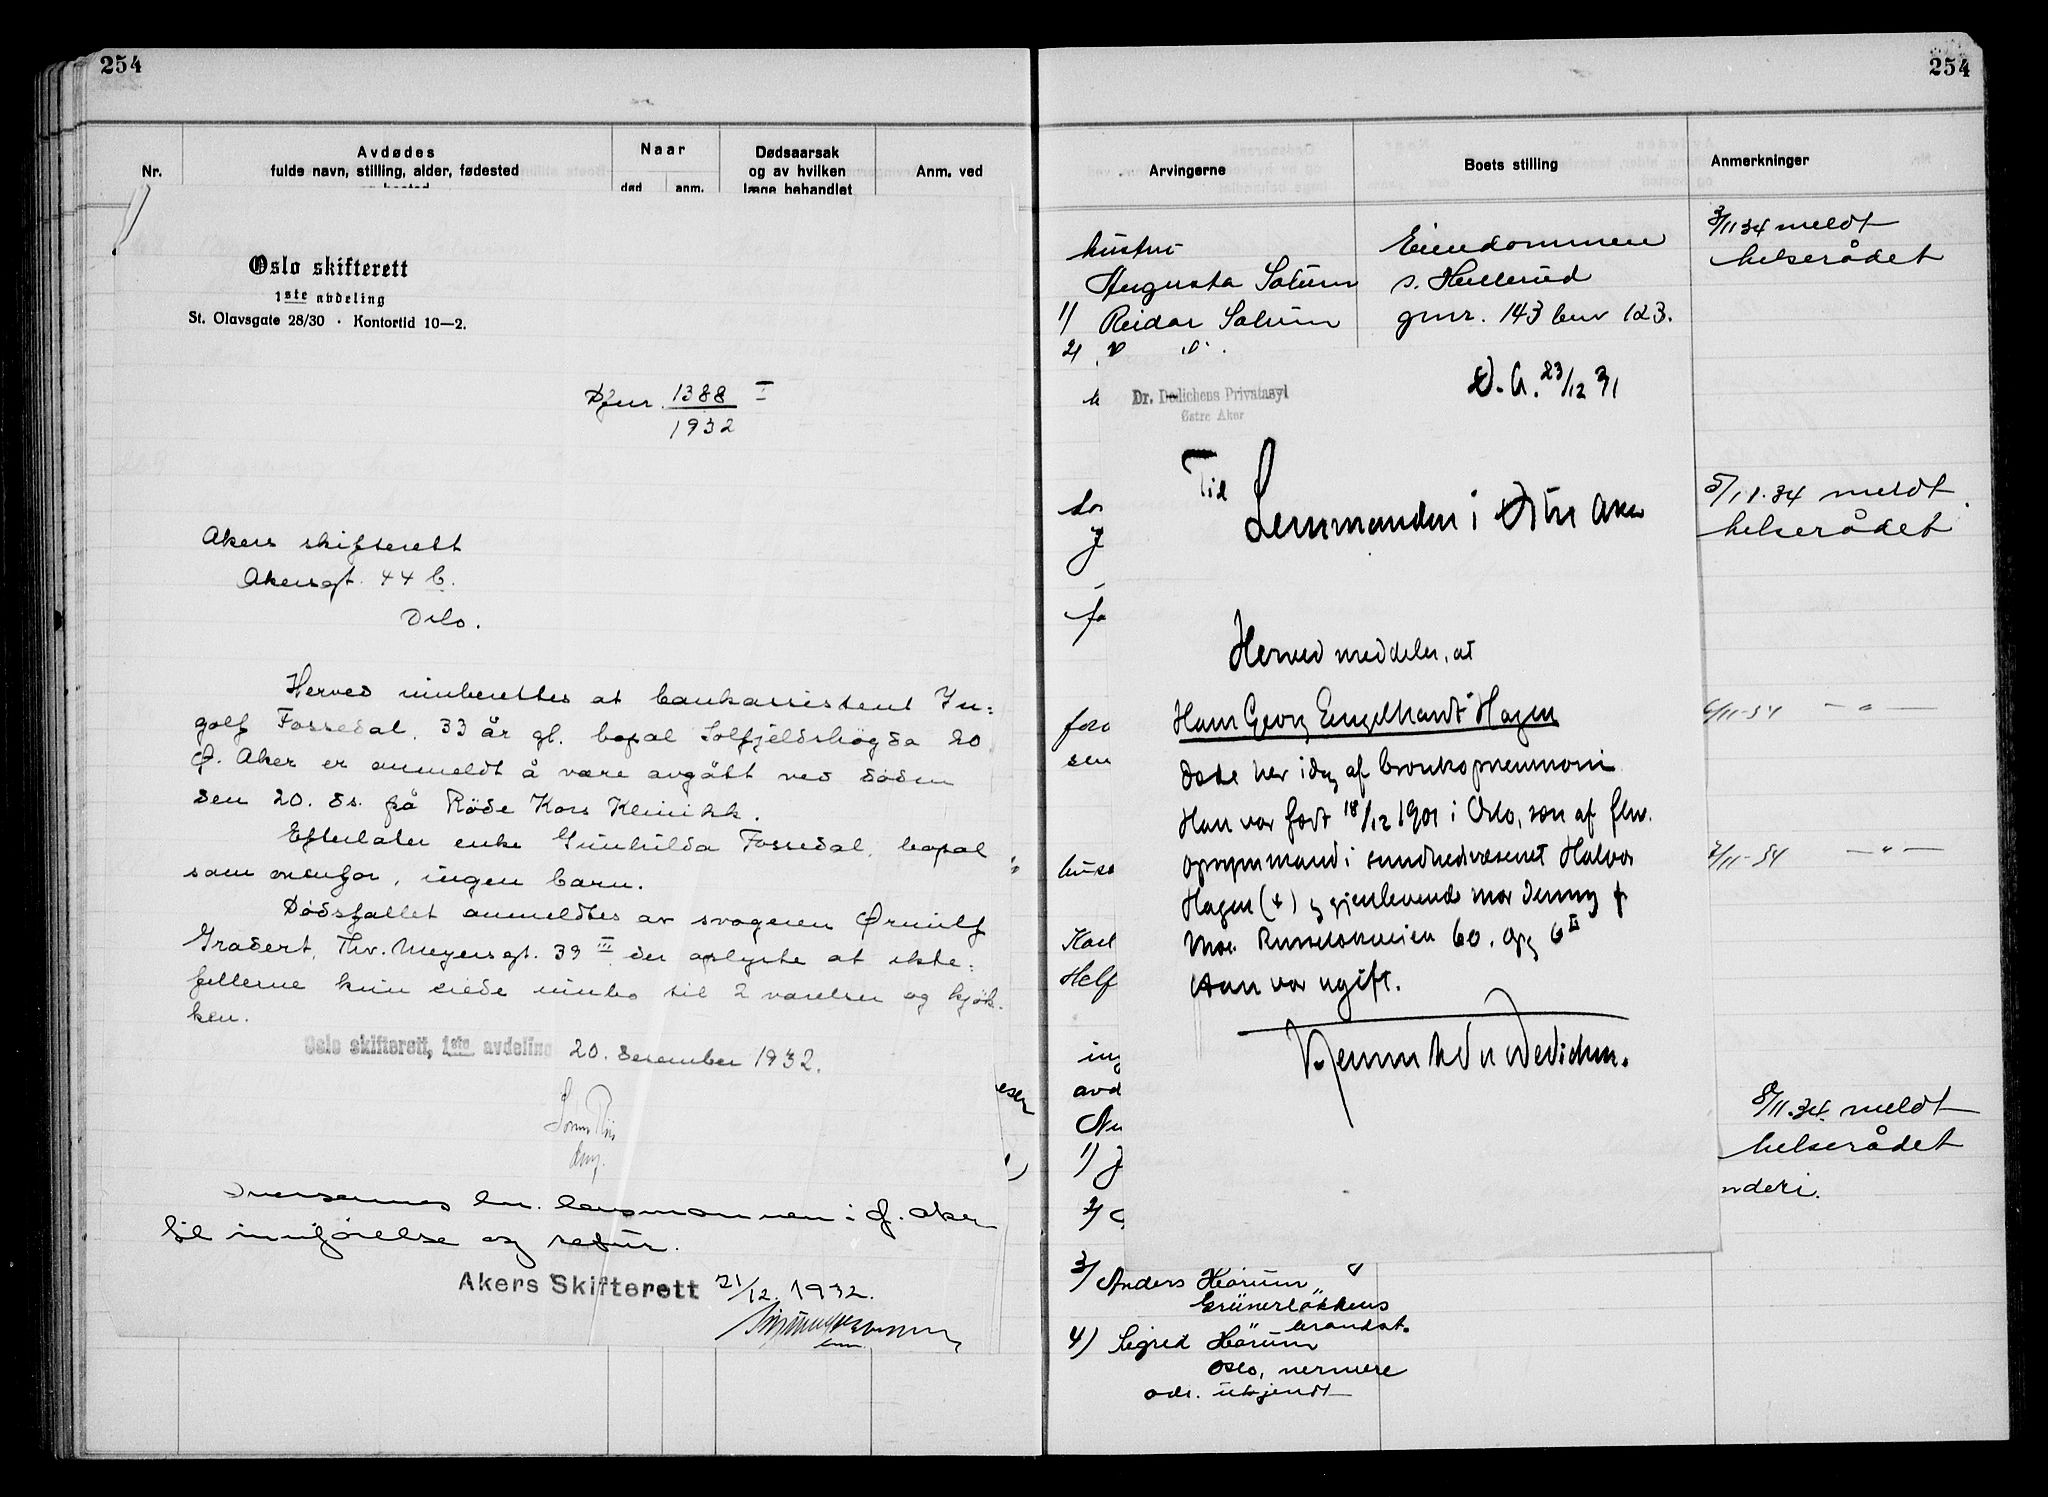 254
Nr.
Avdødes
fulde navn, stilling, alder, fødested
Naar
død
anm.
Dødsaarsak
og av hvilken
læge behandlet
Anm. ved
Oslo skifterett
1ste avdeling
St. Olavsgate 28/30 · Kontortid 10—2.
Djnr. 1388 I
1932
Akers skifterett
Akersgt. 44 b.
Oslo.
Herved innberettes at bankassistent In=
golf Fossedal, 33 år gl. bopæl Solfjeldshögda 20
Ø. Aker er anmeldt å være avgått ved döden
den 20. ds. på Röde Kors Klinikk.
Efterlater enke Gunhilda Fossedal, bopæl
som ovenfor, ingen barn.
Dödsfallet anmeldtes av svogeren Ørnulf
Gradert, Thv. Meyersgt. 39 III der oplyste at ekte=
fellerne kun eiede innbo til 2 værelser og kjök-
ken.
Oslo skifterett, 1ste avdeling 20. desember 1932.
Oversendes hr. lensmannen i Ø. Aker
til innförelse og retur.
Akers Skifterett 21/12. 1932.
254
Arvingerne
Boets stilling
Anmerkninger
hustru
Augusta Solum
1) Reidar Solum
2) " "
Eiendommen
s. Hellerud
gnr. 143 bnr 123.
3/11 34 meldt
helserådet
Dr. Dedichens Privatasyl
Østre Aker
D. A. 23/12 31
Til
Lensmanden i Østre Aker
Herved meddeles, at
Hans Georg Engelhardt Hagen
døde her idag af bronkopneumoni
Han var født 18/12 1901 i Oslo, søn af fhv.
opsynsmand i sundhedsvæsenet Halvor
Hagen (+) og gjenlevende mor Jenny f
Moe. Ruseløkveien 60. opg 6 II
Han var ugift.
5/11.34 meldt
helserådet
6/11-34 — " —
7/11-34 — " —
8/11.34. meldt
helserådet
nderi.
foro
sen
Karl
Helf
ing
avd
1) J
2)
3) Anders Hörum
Grünerløkkens
brandst.
4) Sigrid Hörum
Oslo, nermere
adr. ukjendt